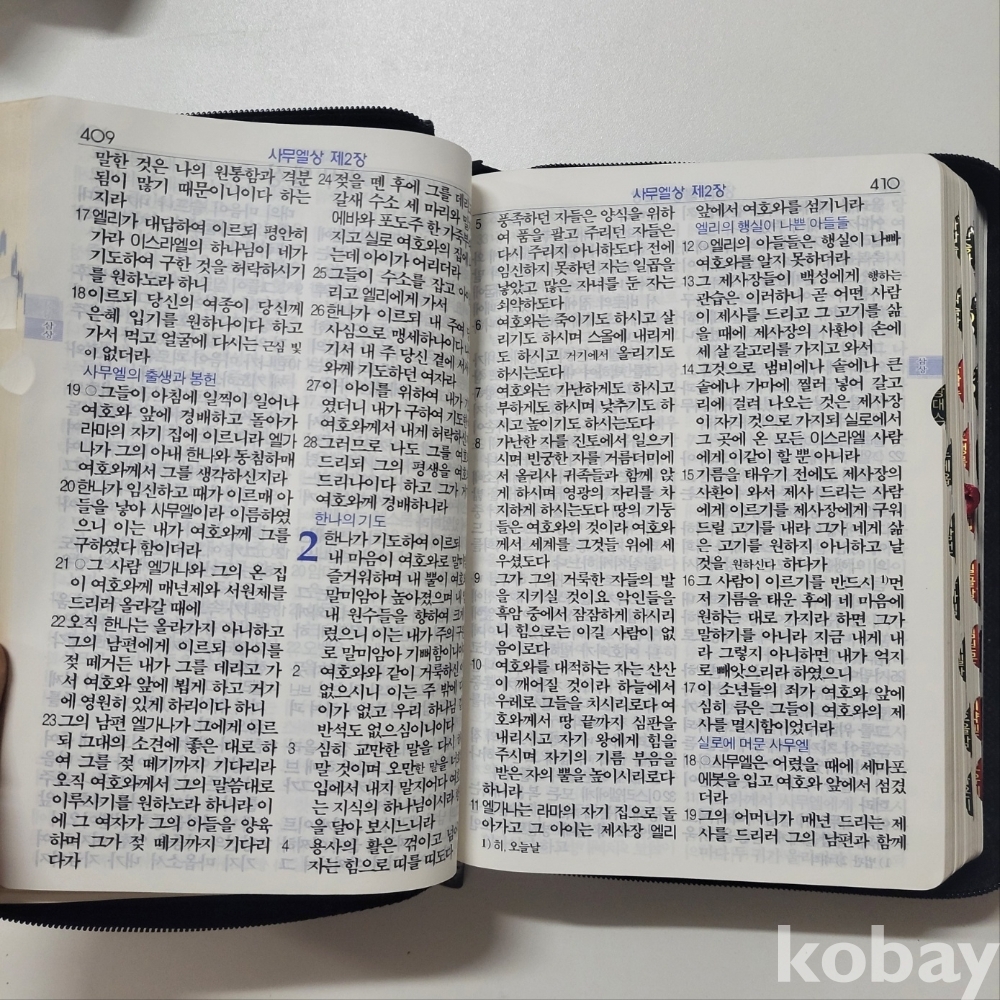 409
사무엘상 제2장
말한 것은 나의 원통함과 격분
됨이 많기 때문이니이다 하는
지라
17 엘리가 대답하여 이르되 평안히
가라 이스라엘의 하나님이 네가
기도하여 구한 것을 허락하시기
를 원하노라 하니
18 이르되 당신의 여종이 당신께
은혜 입기를 원하나이다 하고
가서 먹고 얼굴에 다시는 근심 빛
이 없더라
사무엘의 출생과 봉헌
19 ○그들이 아침에 일찍이 일어나
여호와 앞에 경배하고 돌아가
라마의 자기 집에 이르니라 엘가
나가 그의 아내 한나와 동침하매
여호와께서 그를 생각하신지라
20 한나가 임신하고 때가 이르매 아
들을 낳아 사무엘이라 이름하였
으니 이는 내가 여호와께 그를
구하였다 함이더라
21 ○그 사람 엘가나와 그의 온 집
이 여호와께 매년제와 서원제를
드리러 올라갈 때에
22 오직 한나는 올라가지 아니하고
그의 남편에게 이르되 아이를
젖 떼거든 내가 그를 데리고 가
서 여호와 앞에 뵙게 하고 거기
에 영원히 있게 하리이다 하니
23 그의 남편 엘가나가 그에게 이르
되 그대의 소견에 좋은 대로 하
여 그를 젖 떼기까지 기다리라
오직 여호와께서 그의 말씀대로
이루시기를 원하노라 하니라 이
에 그 여자가 그의 아들을 양육
하며 그가 젖 떼기까지 기다리
다가
24 젖을 뗀 후에 그를 데리
갈새 수소 세 마리와 밀
에바와 포도주 한 가죽부
지고 실로 여호와의 집에
는데 아이가 어리더라
25 그들이 수소를 잡고 아이
리고 엘리에게 가서
26 한나가 이르되 내 주여
사심으로 맹세하나이다
기서 내 주 당신 곁에 서서
와께 기도하던 여자라
27 이 아이를 위하여 내가
였더니 내가 구하여 기도한
여호와께서 내게 허락하신
28 그러므로 나도 그를 여호
드리되 그의 평생을 여호
드리나이다 하고 그가 거
여호와께 경배하니라
한나의 기도
2 한나가 기도하여 이르되
내 마음이 여호와로 말미
즐거워하며 내 뿔이 여호
말미암아 높아졌으며 내
내 원수들을 향하여 크게
렸으니 이는 내가 주의 구
로 말미암아 기뻐함이니이
2 여호와와 같이 거룩하신
없으시니 이는 주 밖에
이가 없고 우리 하나님
반석도 없으심이니이다
3 심히 교만한 말을 다시 하
말 것이며 오만한 말을 너희
입에서 내지 말지어다 여호
는 지식의 하나님이시라
을 달아 보시느니라
4 용사의 활은 꺾이고 넘어
자는 힘으로 띠를 띠도다
사무엘상 제2장
410
5 풍족하던 자들은 양식을 위하
여 품을 팔고 주리던 자들은
다시 주리지 아니하도다 전에
임신하지 못하던 자는 일곱을
낳았고 많은 자녀를 둔 자는
쇠약하도다
6 여호와는 죽이기도 하시고 살
리기도 하시며 스올에 내리게
도 하시고 거기에서 올리기도
하시는도다
7 여호와는 가난하게도 하시고
부하게도 하시며 낮추기도 하
시고 높이기도 하시는도다
8 가난한 자를 진토에서 일으키
시며 빈궁한 자를 거름더미에
서 올리사 귀족들과 함께 앉
게 하시며 영광의 자리를 차
지하게 하시는도다 땅의 기둥
들은 여호와의 것이라 여호와
께서 세계를 그것들 위에 세
우셨도다
9 그가 그의 거룩한 자들의 발
을 지키실 것이요 악인들을
흑암 중에서 잠잠하게 하시리
니 힘으로는 이길 사람이 없
음이로다
10 여호와를 대적하는 자는 산산
이 깨어질 것이라 하늘에서
우레로 그들을 치시리로다 여
호와께서 땅 끝까지 심판을
내리시고 자기 왕에게 힘을
주시며 자기의 기름 부음을
받은 자의 뿔을 높이시리로다
하니라
11 엘가나는 라마의 자기 집으로 돌
아가고 그 아이는 제사장 엘리
1) 히, 오늘날
앞에서 여호와를 섬기니라
엘리의 행실이 나쁜 아들들
12 ○엘리의 아들들은 행실이 나빠
여호와를 알지 못하더라
13 그 제사장들이 백성에게 행하는
관습은 이러하니 곧 어떤 사람
이 제사를 드리고 그 고기를 삶
을 때에 제사장의 사환이 손에
세 살 갈고리를 가지고 와서
14 그것으로 냄비에나 솥에나 큰
솥에나 가마에 찔러 넣어 갈고
리에 걸려 나오는 것은 제사장
이 자기 것으로 가지되 실로에서
그 곳에 온 모든 이스라엘 사람
에게 이같이 할 뿐 아니라
15 기름을 태우기 전에도 제사장의
사환이 와서 제사 드리는 사람
에게 이르기를 제사장에게 구워
드릴 고기를 내라 그가 네게 삶
은 고기를 원하지 아니하고 날
것을 원하신다 하다가
16 그 사람이 이르기를 반드시 1)먼
저 기름을 태운 후에 네 마음에
원하는 대로 가지라 하면 그가
말하기를 아니라 지금 내게 내
라 그렇지 아니하면 내가 억지
로 빼앗으리라 하였으니
17 이 소년들의 죄가 여호와 앞에
심히 큼은 그들이 여호와의 제
사를 멸시함이었더라
실로에 머문 사무엘
18 ○사무엘은 어렸을 때에 세마포
에봇을 입고 여호와 앞에서 섬겼
더라
19 그의 어머니가 매년 드리는 제
사를 드리러 그의 남편과 함께
삼상
삼상
kobay